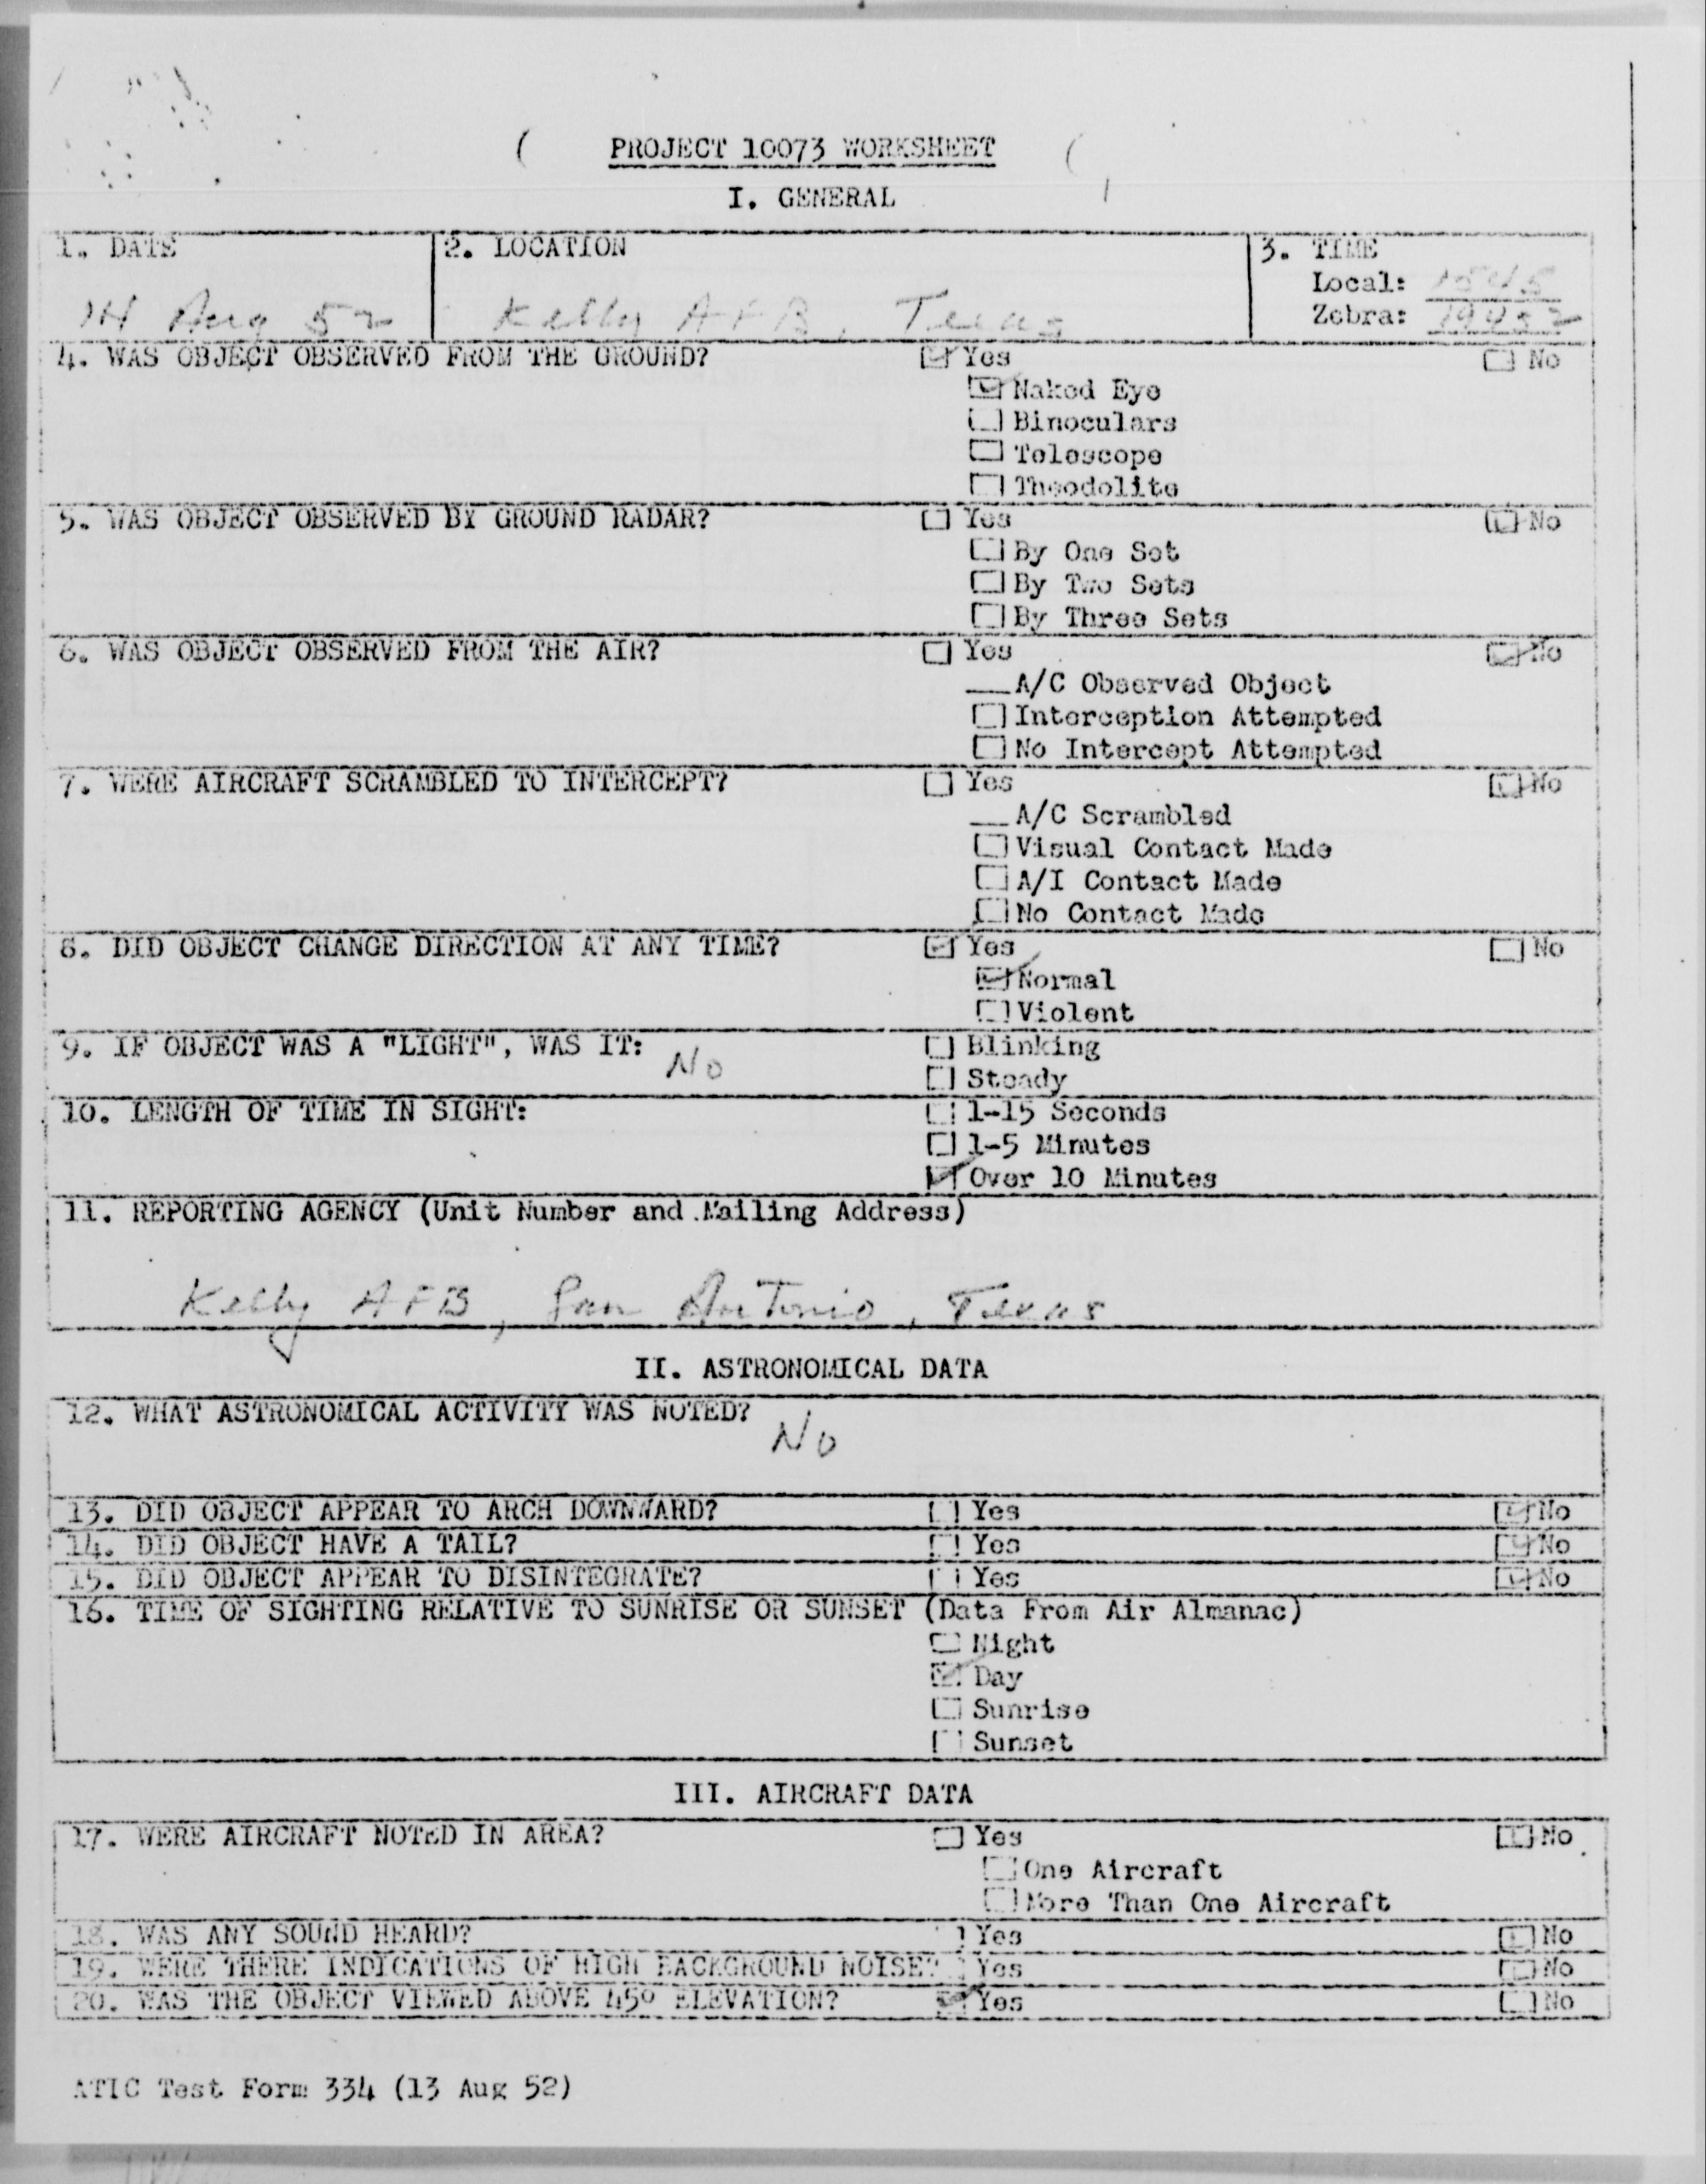 PROJECT 10073 WORKSHEET
I. GENERAL
1. DATE
2. LOCATION
3. TIME
Local: 1545
14 Aug 52
Kelly AFB, Texas
Zebra:
4. WAS OBJECT OBSERVED FROM THE GROUND? Yes No
Naked Eye
Binoculars
Telescope
Theodolite
5. WAS OBJECT OBSERVED BY GROUND RADAR? Yes No
By One Set
By Two Sets
By Three Sets
6. WAS OBJECT OBSERVED FROM THE AIR? Yes No
__A/C Observed Object
Interception Attempted
No Intercept Attempted
7. WERE AIRCRAFT SCRAMBLED TO INTERCEPT? Yes No
__A/C Scrambled
Visual Contact Made
A/I Contact Made
No Contact Made
8. DID OBJECT CHANGE DIRECTION AT ANY TIME? Yes No
Normal
Violent
9. IF OBJECT WAS A "LIGHT", WAS IT: No Blinking
Steady
10. LENGTH OF TIME IN SIGHT: 1-15 Seconds
1-5 Minutes
Over 10 Minutes
11. REPORTING AGENCY (Unit Number and Mailing Address)
Kelly AFB, San Antonio, Texas
II. ASTRONOMICAL DATA
12. WHAT ASTRONOMICAL ACTIVITY WAS NOTED?
No
13. DID OBJECT APPEAR TO ARCH DOWNWARD? Yes No
14. DID OBJECT HAVE A TAIL? Yes No
15. DID OBJECT APPEAR TO DISINTEGRATE? Yes No
16. TIME OF SIGHTING RELATIVE TO SUNRISE OR SUNSET (Data From Air Almanac)
Night
Day
Sunrise
Sunset
III. AIRCRAFT DATA
17. WERE AIRCRAFT NOTED IN AREA? Yes No
One Aircraft
More Than One Aircraft
18. WAS ANY SOUND HEARD? Yes No
19. WERE THERE INDICATIONS OF HIGH BACKGROUND NOISE? Yes No
20. WAS THE OBJECT VIEWED ABOVE 45° ELEVATION? Yes No
ATIC Test Form 334 (13 Aug 52)